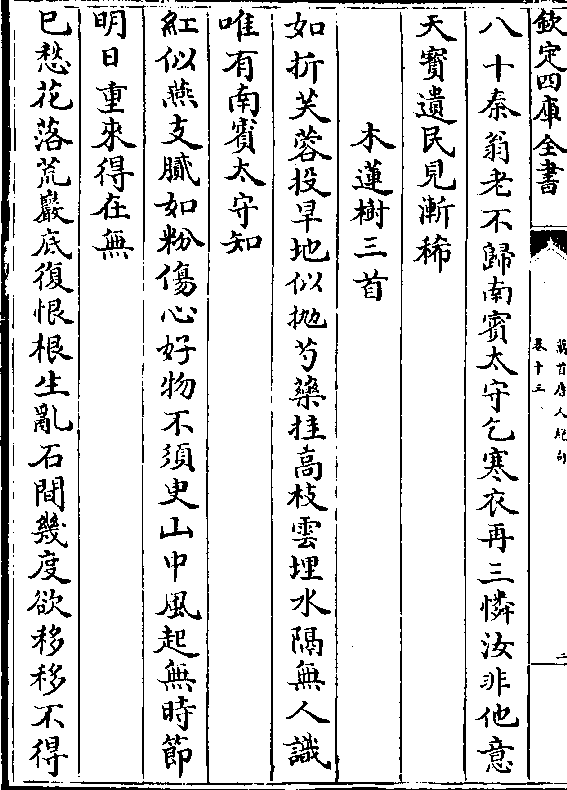 欽定四庫全書
萬首唐人絶句
卷十三
二
八十秦翁老不歸南賓太守乞寒衣再三憐汝非他意
天寳遺民見漸稀
木蓮樹三首
如折芙蓉投旱地似抛芍藥挂高枝雲埋水隔無人識
唯有南賓太守知
紅似燕支膩如粉傷心好物不須臾山中風起無時節
明日重來得在無
已愁花落荒巖底復恨根生亂石間幾度欲移移不得